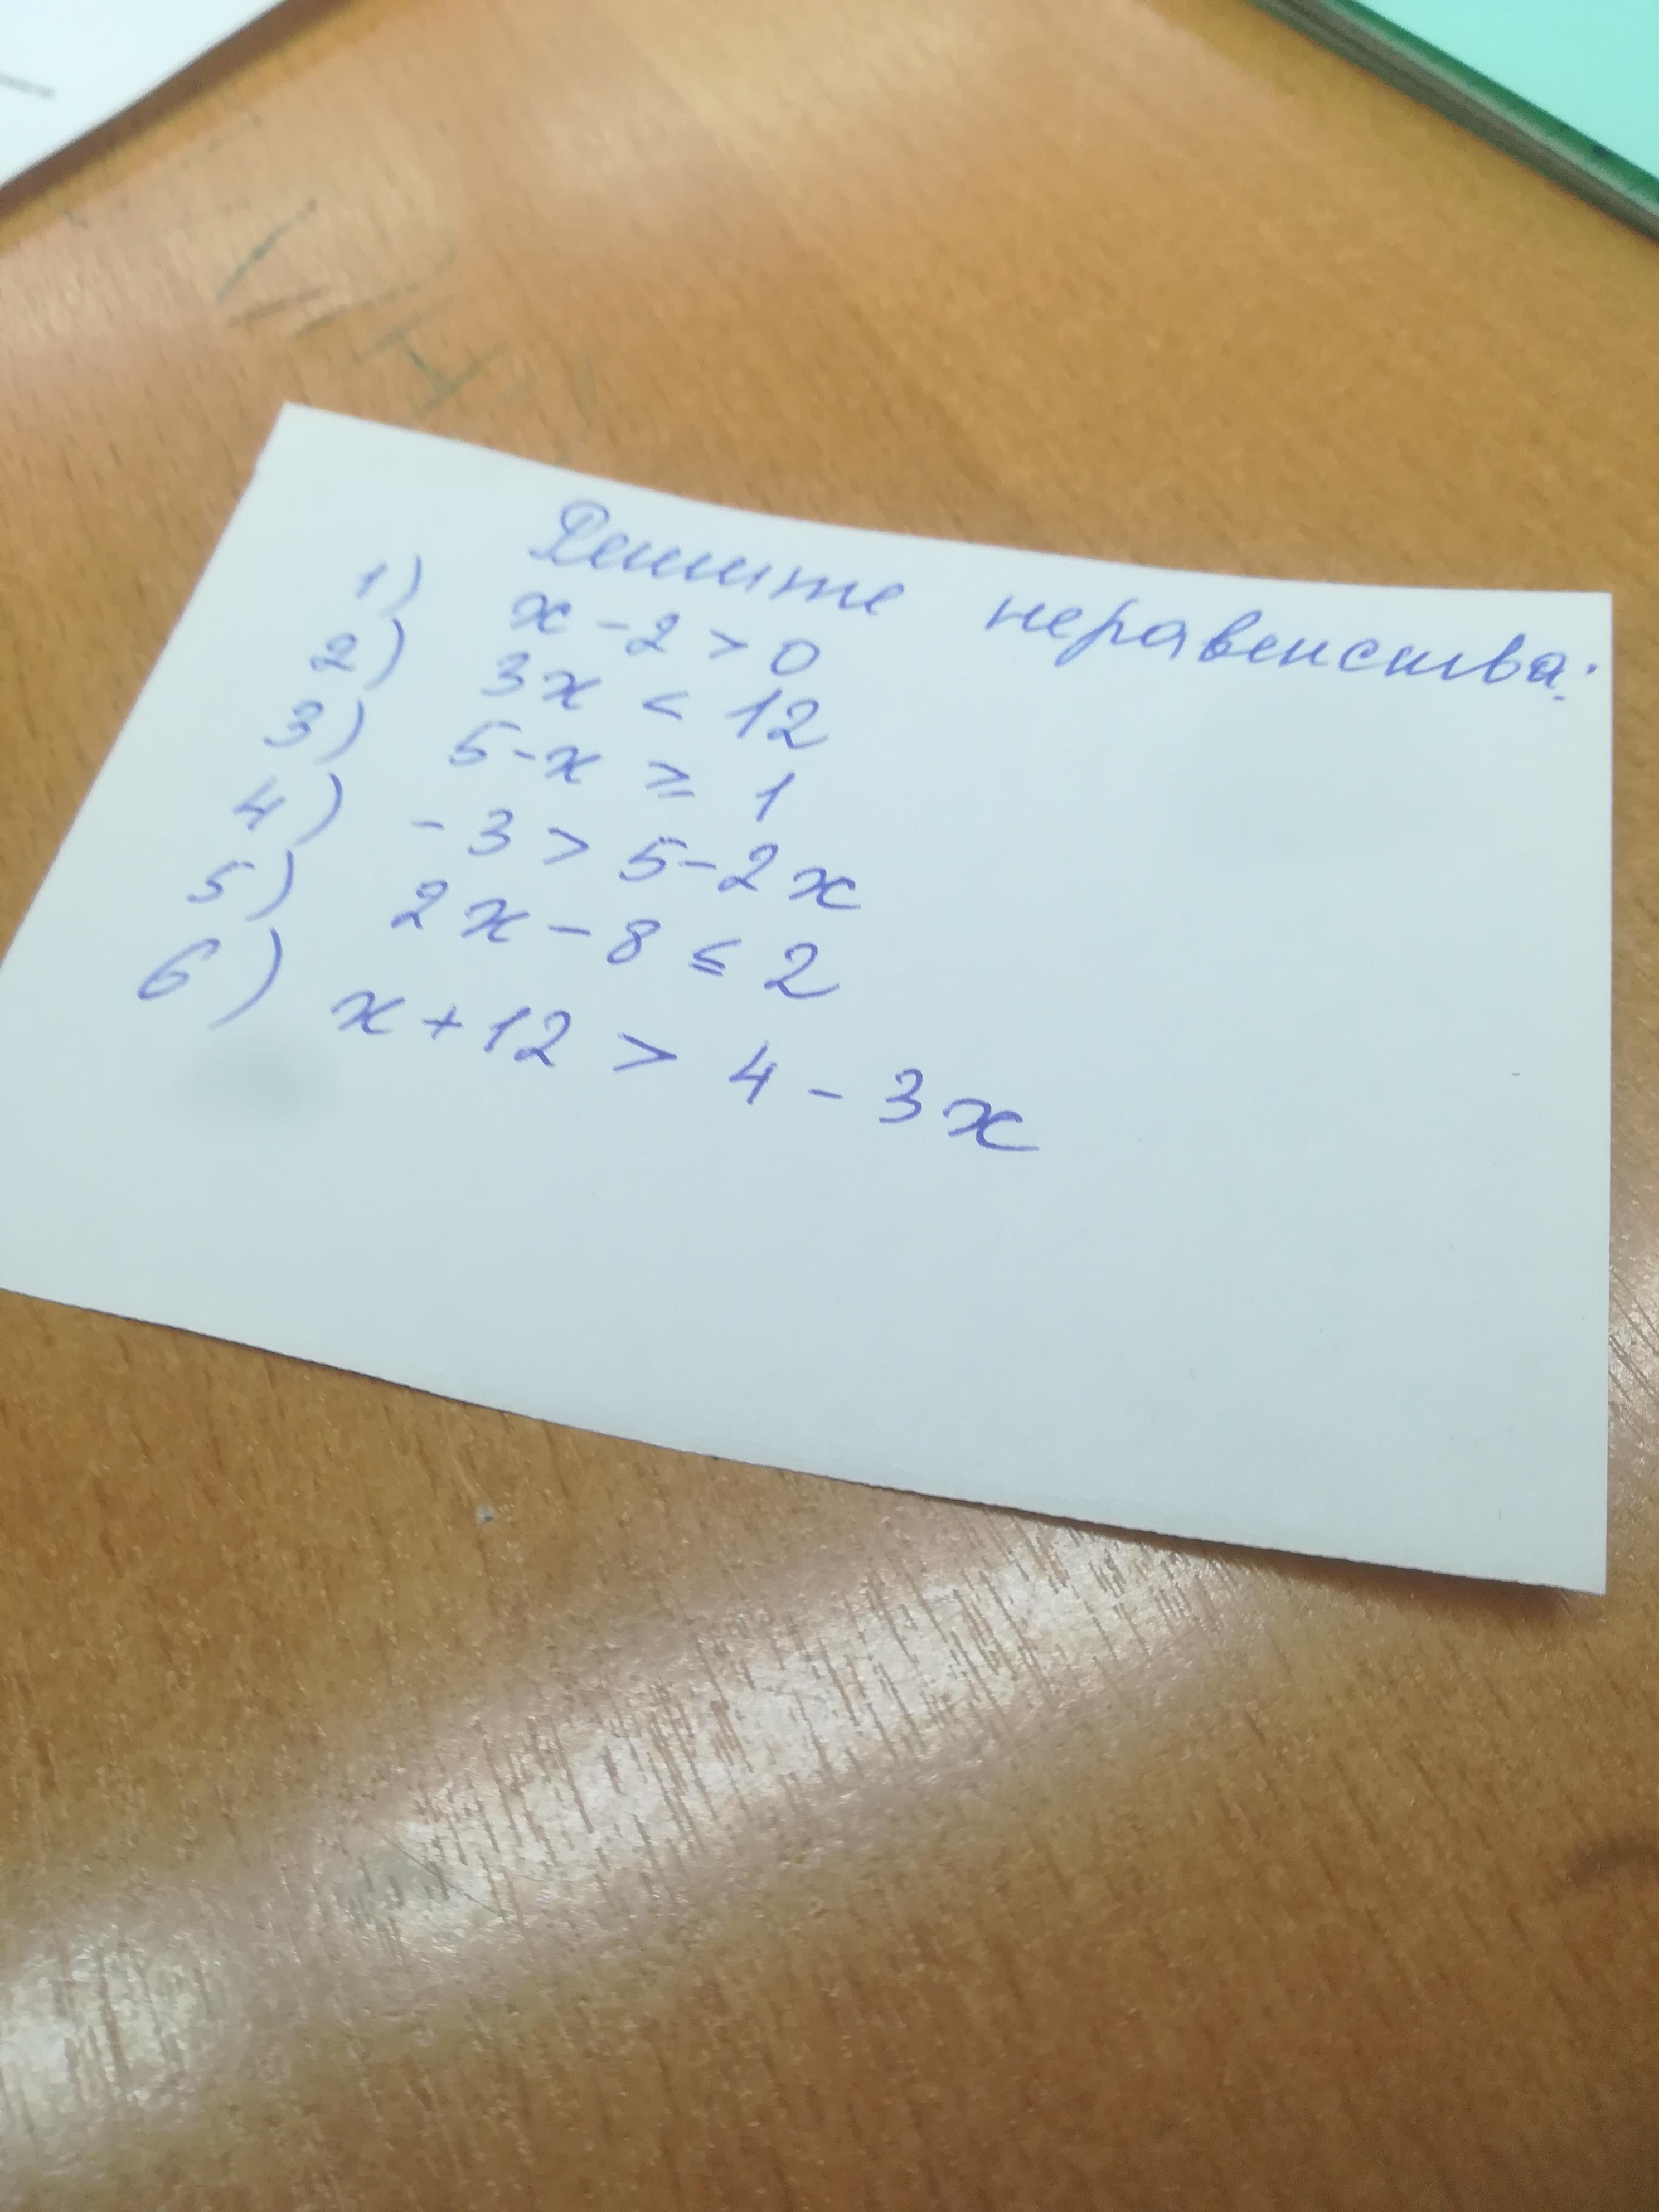 Решите неравенства:
1) x - 2 > 0
2) 3x < 12
3) 5 - x ≥ 1
4) -3 > 5 - 2x
5) 2x - 8 ≤ 2
6) x + 12 > 4 - 3x